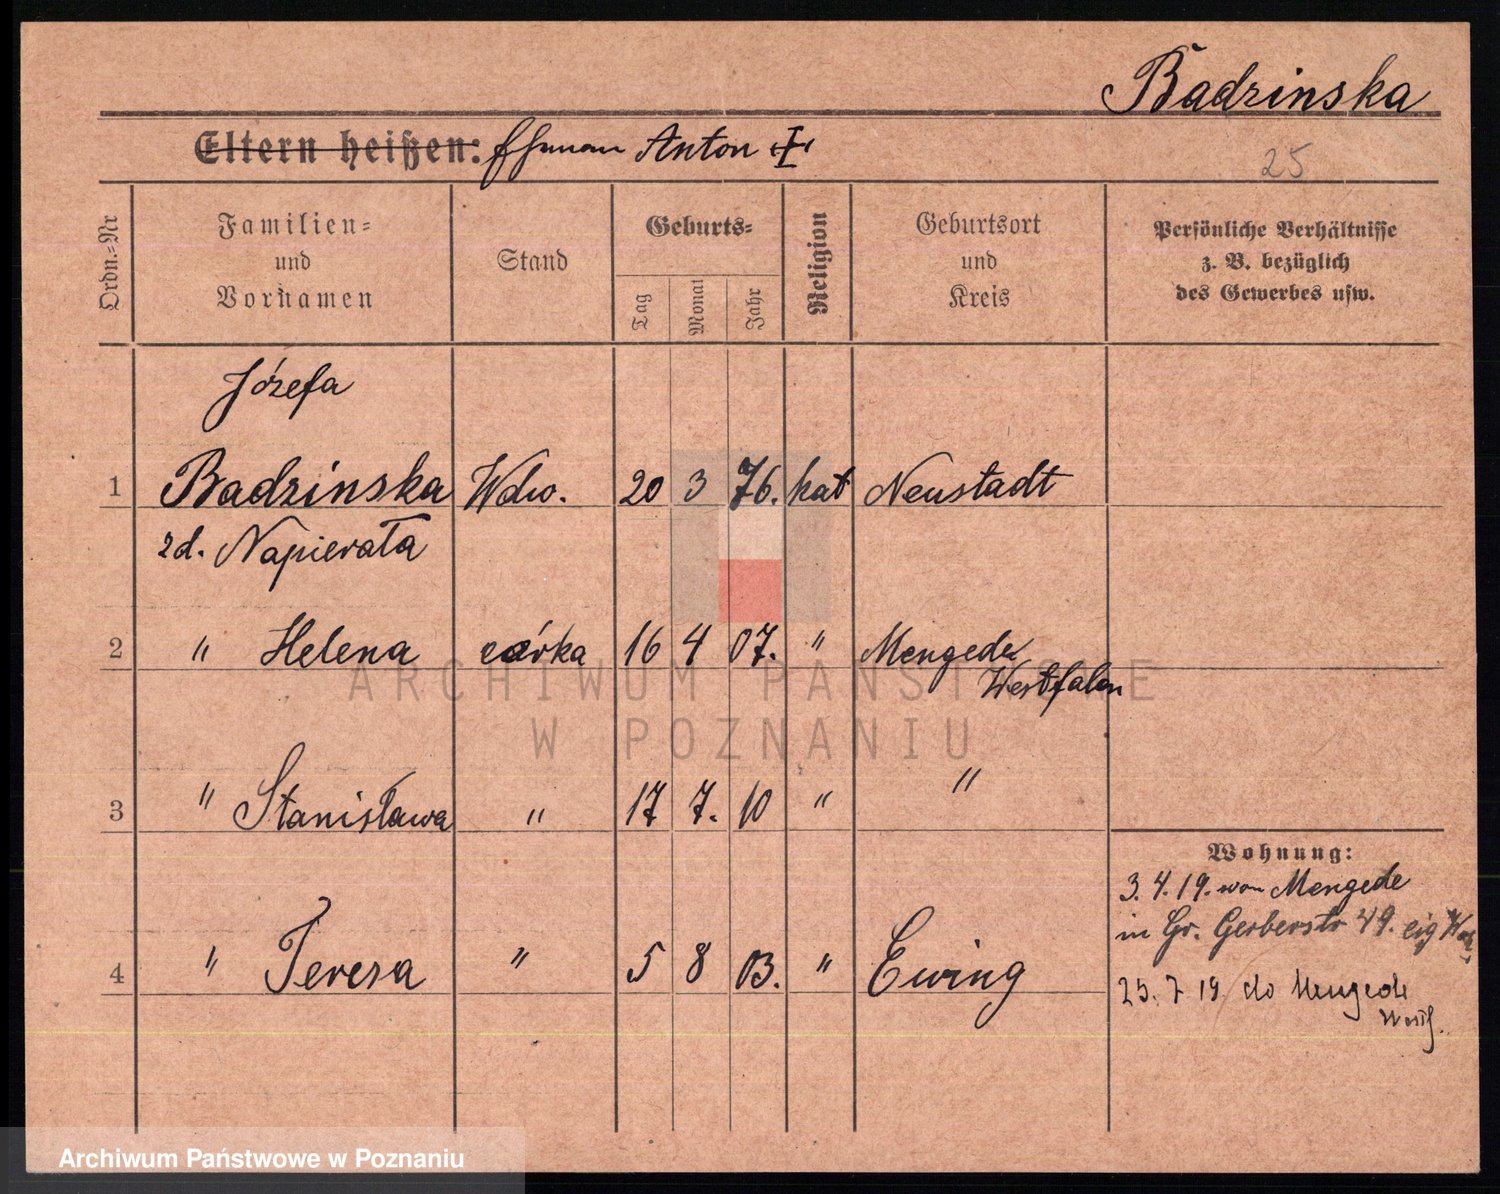 Badzinska
Eltern heißen: Ehemann Anton
25
Ordn.-Nr
Familien-
und
Vornamen
Stand
Geburts-
Tag
Monat
Jahr
Religion
Geburtsort
und
Kreis
Persönliche Verhältnisse
z. B. bezüglich
des Gewerbes usw.
Józefa
1 Badzinska Wdw. 20 3 76. kat Neustadt
zd. Napierała
2 " Helena córka 16 4 07. " Mengede
Westfalen
3 " Stanisława " 17 7. 10 " "
Wohnung:
3. 4. 19. von Mengede
in Gr. Gerberstr 49. eig
4 " Teresa " 5 8 03. " Ewing
25. 7 19 do Mengede
Westf.
ARCHIWUM PAŃSTWOWE
W POZNANIU
Archiwum Państwowe w Poznaniu